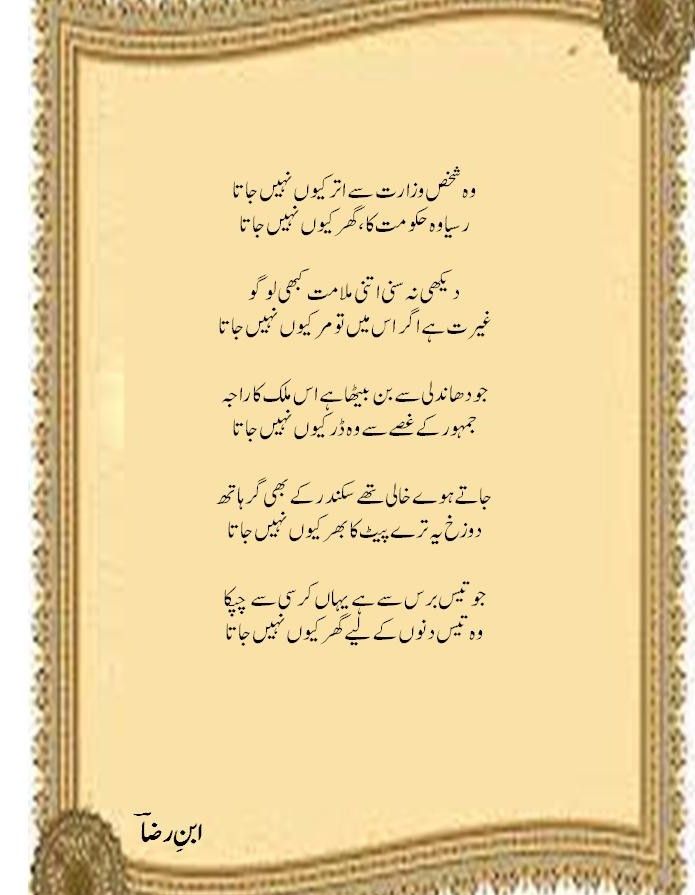 وہ شخص وزارت سے اتر کیوں نہیں جاتا
رسیا وہ حکومت کا، گھر کیوں نہیں جاتا
دیکھی نہ سنی اتنی ملامت کبھی لوگو
غیرت ہے اگر اس میں تو مر کیوں نہیں جاتا
جو دھاندلی سے بن بیٹھا ہے اس ملک کا راجہ
جمہور کے غصے سے وہ ڈر کیوں نہیں جاتا
جاتے ہوے خالی تھے سکندر کے بھی گر ہاتھ
دوزخ یہ ترے پیٹ کا بھر کیوں نہیں جاتا
جو تیس برس سے ہے یہاں کرسی سے چپکا
وہ تیس دنوں کے لیے گھر کیوں نہیں جاتا
ابنِ رضاؔ